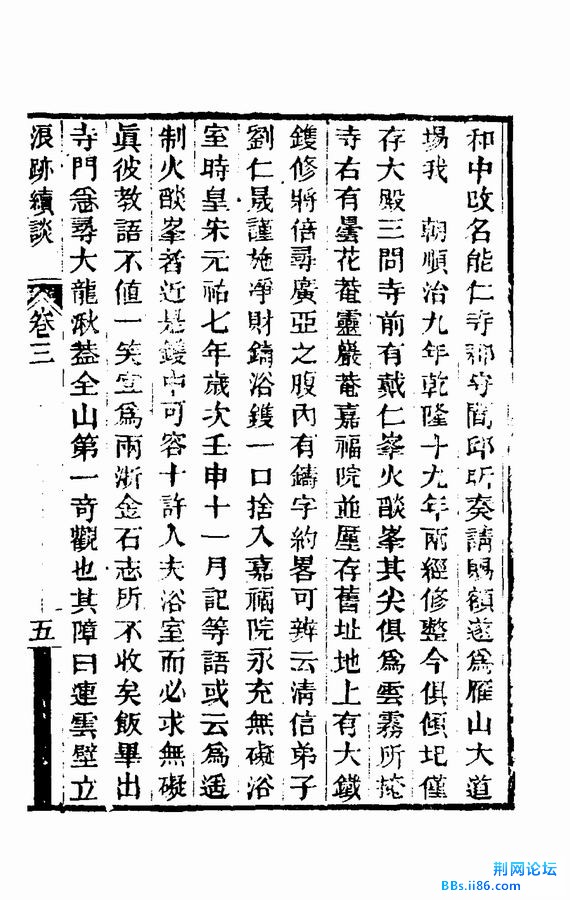 和中改名能仁寺郡守閭邱昕奏請賜額遂爲雁山大道
場我　朝順治九年乾隆十九年兩經修整今俱傾圯僅
存大殿三間寺前有戴仁峯火醶峯其尖俱爲雲霧所掩
寺右有曇花菴靈巖菴嘉福院並廑存舊址地上有大鐵
鑊修將倍尋廣亞之腹內有鑄字約畧可辨云清信弟子
劉仁晟謹施凈財鑄浴鑊一口捨入嘉福院永充無礙浴
室時皇宋元祐七年歲次壬申十一月記等語或云爲遥
制火醶峯者近是鑊中可容十許人夫浴室而必求無礙
眞彼教語不值一笑宜爲兩浙金石志所不收矣飯畢出
寺門急尋大龍湫葢全山第一奇觀也其障曰連雲壁立
浪跡續談　卷三　五
荆网论坛
BBs.ii86.com